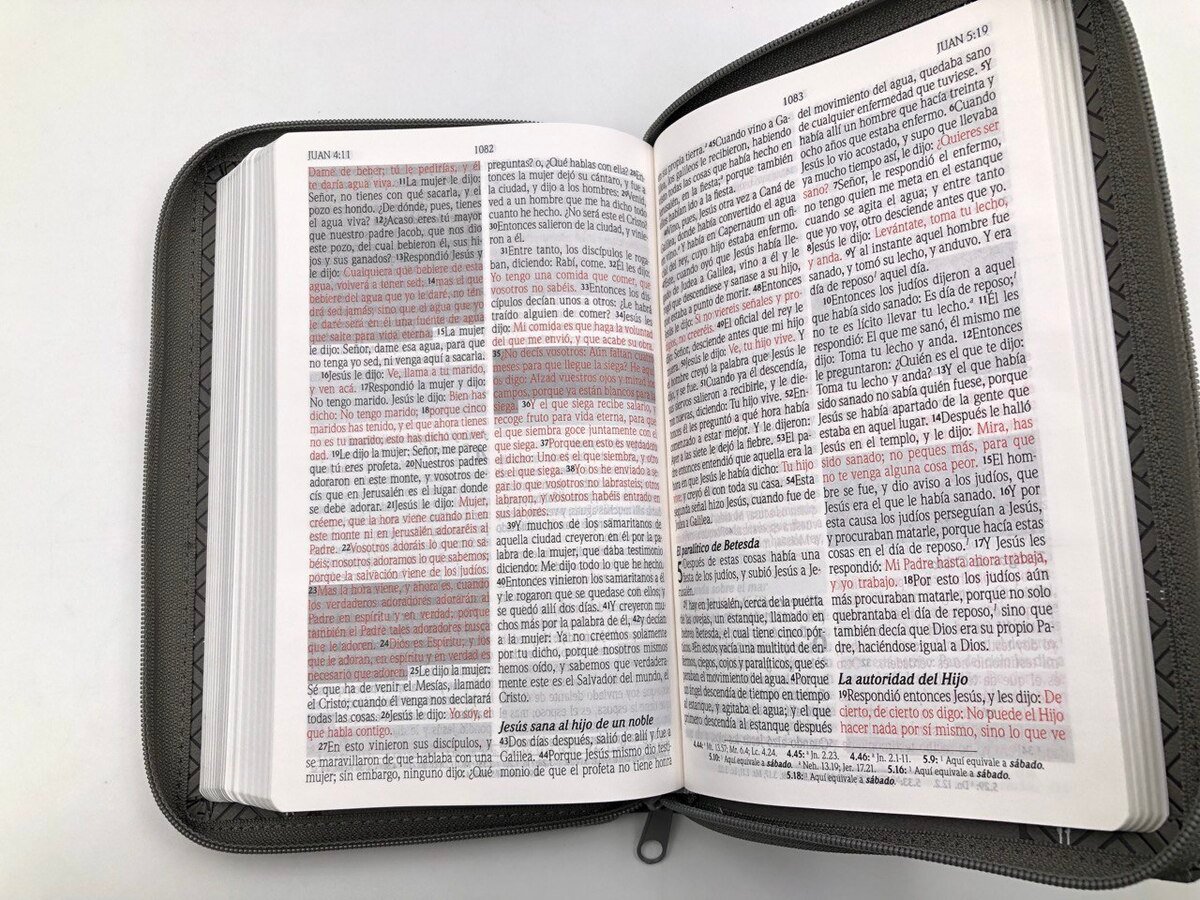 JUAN 4:11
1082
Dame de beber; tú le pedirías, y él
te daría agua viva. 11La mujer le dijo:
Señor, no tienes con qué sacarla, y el
pozo es hondo. ¿De dónde, pues, tienes
el agua viva? 12¿Acaso eres tú mayor
que nuestro padre Jacob, que nos dio
este pozo, del cual bebieron él, sus hi-
jos y sus ganados? 13Respondió Jesús y
le dijo: Cualquiera que bebiere de esta
agua, volverá a tener sed; 14mas el que
bebiere del agua que yo le daré, no ten-
drá sed jamás; sino que el agua que yo
le daré será en él una fuente de agua
que salte para vida eterna. 15La mujer
le dijo: Señor, dame esa agua, para que
no tenga yo sed, ni venga aquí a sacarla.
16Jesús le dijo: Ve, llama a tu marido,
y ven acá. 17Respondió la mujer y dijo:
No tengo marido. Jesús le dijo: Bien has
dicho: No tengo marido; 18porque cinco
maridos has tenido, y el que ahora tienes
no es tu marido; esto has dicho con ver-
dad. 19Le dijo la mujer: Señor, me parece
que tú eres profeta. 20Nuestros padres
adoraron en este monte, y vosotros de-
cís que en Jerusalén es el lugar donde
se debe adorar. 21Jesús le dijo: Mujer,
créeme, que la hora viene cuando ni en
este monte ni en Jerusalén adoraréis al
Padre. 22Vosotros adoráis lo que no sa-
béis; nosotros adoramos lo que sabemos;
porque la salvación viene de los judíos.
23Mas la hora viene, y ahora es, cuando
los verdaderos adoradores adorarán al
Padre en espíritu y en verdad; porque
también el Padre tales adoradores busca
que le adoren. 24Dios es Espíritu; y los
que le adoran, en espíritu y en verdad es
necesario que adoren. 25Le dijo la mujer:
Sé que ha de venir el Mesías, llamado
el Cristo; cuando él venga nos declarará
todas las cosas. 26Jesús le dijo: Yo soy, el
que habla contigo.
27En esto vinieron sus discípulos, y
se maravillaron de que hablaba con una
mujer; sin embargo, ninguno dijo: ¿Qué
preguntas? o, ¿Qué hablas con ella? 28En-
tonces la mujer dejó su cántaro, y fue a
la ciudad, y dijo a los hombres: 29Venid,
ved a un hombre que me ha dicho todo
cuanto he hecho. ¿No será este el Cristo?
30Entonces salieron de la ciudad, y vinie-
ron a él.
31Entre tanto, los discípulos le roga-
ban, diciendo: Rabí, come. 32Él les dijo:
Yo tengo una comida que comer, que
vosotros no sabéis. 33Entonces los dis-
cípulos decían unos a otros: ¿Le habrá
traído alguien de comer? 34Jesús les
dijo: Mi comida es que haga la voluntad
del que me envió, y que acabe su obra.
35¿No decís vosotros: Aún faltan cuatro
meses para que llegue la siega? He aquí
os digo: Alzad vuestros ojos y mirad los
campos, porque ya están blancos para la
siega. 36Y el que siega recibe salario, y
recoge fruto para vida eterna, para que
el que siembra goce juntamente con el
que siega. 37Porque en esto es verdadero
el dicho: Uno es el que siembra, y otro
es el que siega. 38Yo os he enviado a se-
gar lo que vosotros no labrasteis; otros
labraron, y vosotros habéis entrado en
sus labores.
39Y muchos de los samaritanos de
aquella ciudad creyeron en él por la pa-
labra de la mujer, que daba testimonio
diciendo: Me dijo todo lo que he hecho.
40Entonces vinieron los samaritanos a él
y le rogaron que se quedase con ellos; y
se quedó allí dos días. 41Y creyeron mu-
chos más por la palabra de él, 42y decían
a la mujer: Ya no creemos solamente
por tu dicho, porque nosotros mismos
hemos oído, y sabemos que verdadera-
mente este es el Salvador del mundo, el
Cristo.
Jesús sana al hijo de un noble
43Dos días después, salió de allí y fue a
Galilea. 44Porque Jesús mismo dio testi-
monio de que el profeta no tiene honra
1083
JUAN 5:19
propia tierra. 45Cuando vino a Ga-
los galileos le recibieron, habiendo
todas las cosas que había hecho en
en la fiesta; porque también
habían ido a la fiesta.
pues, Jesús otra vez a Caná de
donde había convertido el agua
Y había en Capernaum un ofi-
del rey, cuyo hijo estaba enfermo.
cuando oyó que Jesús había lle-
de Judea a Galilea, vino a él y le
que descendiese y sanase a su hijo,
estaba a punto de morir. 48Entonces
le dijo: Si no viereis señales y pro-
no creeréis. 49El oficial del rey le
Señor, desciende antes que mi hijo
50Jesús le dijo: Ve, tu hijo vive. Y
hombre creyó la palabra que Jesús le
y se fue. 51Cuando ya él descendía,
siervos salieron a recibirle, y le die-
nuevas, diciendo: Tu hijo vive. 52En-
él les preguntó a qué hora había
a estar mejor. Y le dijeron:
a las siete le dejó la fiebre. 53El pa-
entonces entendió que aquella era la
que Jesús le había dicho: Tu hijo
y creyó él con toda su casa. 54Esta
segunda señal hizo Jesús, cuando fue de
a Galilea.
El paralítico de Betesda
5 Después de estas cosas había una
fiesta de los judíos, y subió Jesús a Je-
rusalén.
2Y hay en Jerusalén, cerca de la puerta
de las ovejas, un estanque, llamado en
hebreo Betesda, el cual tiene cinco pór-
ticos. 3En estos yacía una multitud de en-
fermos, ciegos, cojos y paralíticos, que es-
peraban el movimiento del agua. 4Porque
un ángel descendía de tiempo en tiempo
al estanque, y agitaba el agua; y el que
primero descendía al estanque después
del movimiento del agua, quedaba sano
de cualquier enfermedad que tuviese. 5Y
había allí un hombre que hacía treinta y
ocho años que estaba enfermo. 6Cuando
Jesús lo vio acostado, y supo que llevaba
ya mucho tiempo así, le dijo: ¿Quieres ser
sano? 7Señor, le respondió el enfermo,
no tengo quien me meta en el estanque
cuando se agita el agua; y entre tanto
que yo voy, otro desciende antes que yo.
8Jesús le dijo: Levántate, toma tu lecho,
y anda. 9Y al instante aquel hombre fue
sanado, y tomó su lecho, y anduvo. Y era
día de reposo¹ aquel día.
10Entonces los judíos dijeron a aquel
que había sido sanado: Es día de reposo;¹
no te es lícito llevar tu lecho.ᵃ 11Él les
respondió: El que me sanó, él mismo me
dijo: Toma tu lecho y anda. 12Entonces
le preguntaron: ¿Quién es el que te dijo:
Toma tu lecho y anda? 13Y el que había
sido sanado no sabía quién fuese, porque
Jesús se había apartado de la gente que
estaba en aquel lugar. 14Después le halló
Jesús en el templo, y le dijo: Mira, has
sido sanado; no peques más, para que
no te venga alguna cosa peor. 15El hom-
bre se fue, y dio aviso a los judíos, que
Jesús era el que le había sanado. 16Y por
esta causa los judíos perseguían a Jesús,
y procuraban matarle, porque hacía estas
cosas en el día de reposo.¹ 17Y Jesús les
respondió: Mi Padre hasta ahora trabaja,
y yo trabajo. 18Por esto los judíos aún
más procuraban matarle, porque no solo
quebrantaba el día de reposo,¹ sino que
también decía que Dios era su propio Pa-
dre, haciéndose igual a Dios.
La autoridad del Hijo
19Respondió entonces Jesús, y les dijo: De
cierto, de cierto os digo: No puede el Hijo
hacer nada por sí mismo, sino lo que ve
4.44: ᵃ Mt. 13.57; Mr. 6.4; Lc. 4.24. 4.45: ᵃ Jn. 2.23. 4.46: ᵃ Jn. 2.1-11. 5.9: ¹ Aquí equivale a sábado.
5.10: ¹ Aquí equivale a sábado. ᵃ Neh. 13.19; Jer. 17.21. 5.16: ¹ Aquí equivale a sábado.
5.18: ¹ Aquí equivale a sábado.